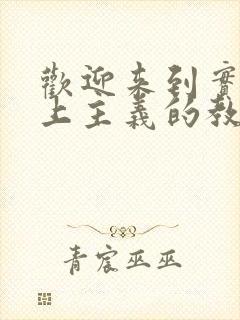 歡迎来到實
上主義的教
青宸巫巫